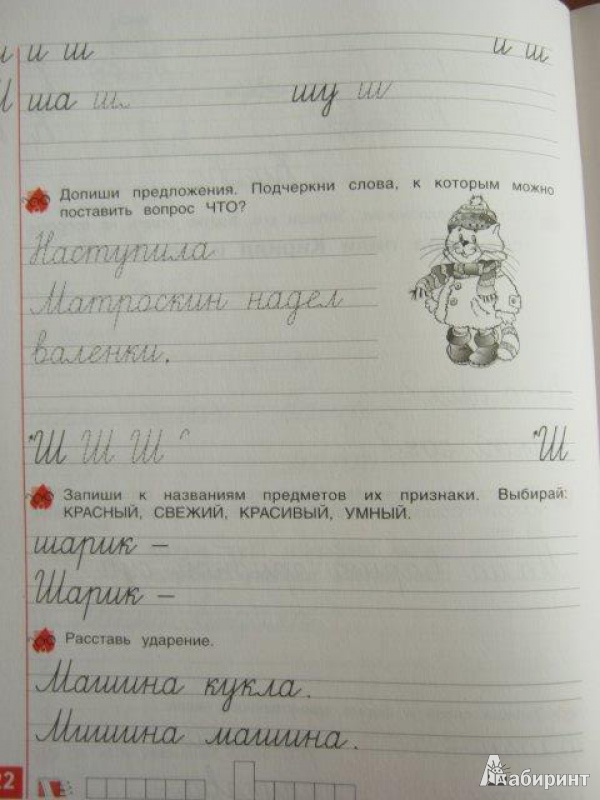 и ш и ш
ша ш шу ш
Допиши предложения. Подчеркни слова, к которым можно
поставить вопрос ЧТО?
Наступила
Матроскин надел
валенки.
Ш Ш Ш Ш
Запиши к названиям предметов их признаки. Выбирай:
КРАСНЫЙ, СВЕЖИЙ, КРАСИВЫЙ, УМНЫЙ.
шарик –
Шарик –
Расставь ударение.
Машина кукла.
Мишина машина.
22
Лабиринт